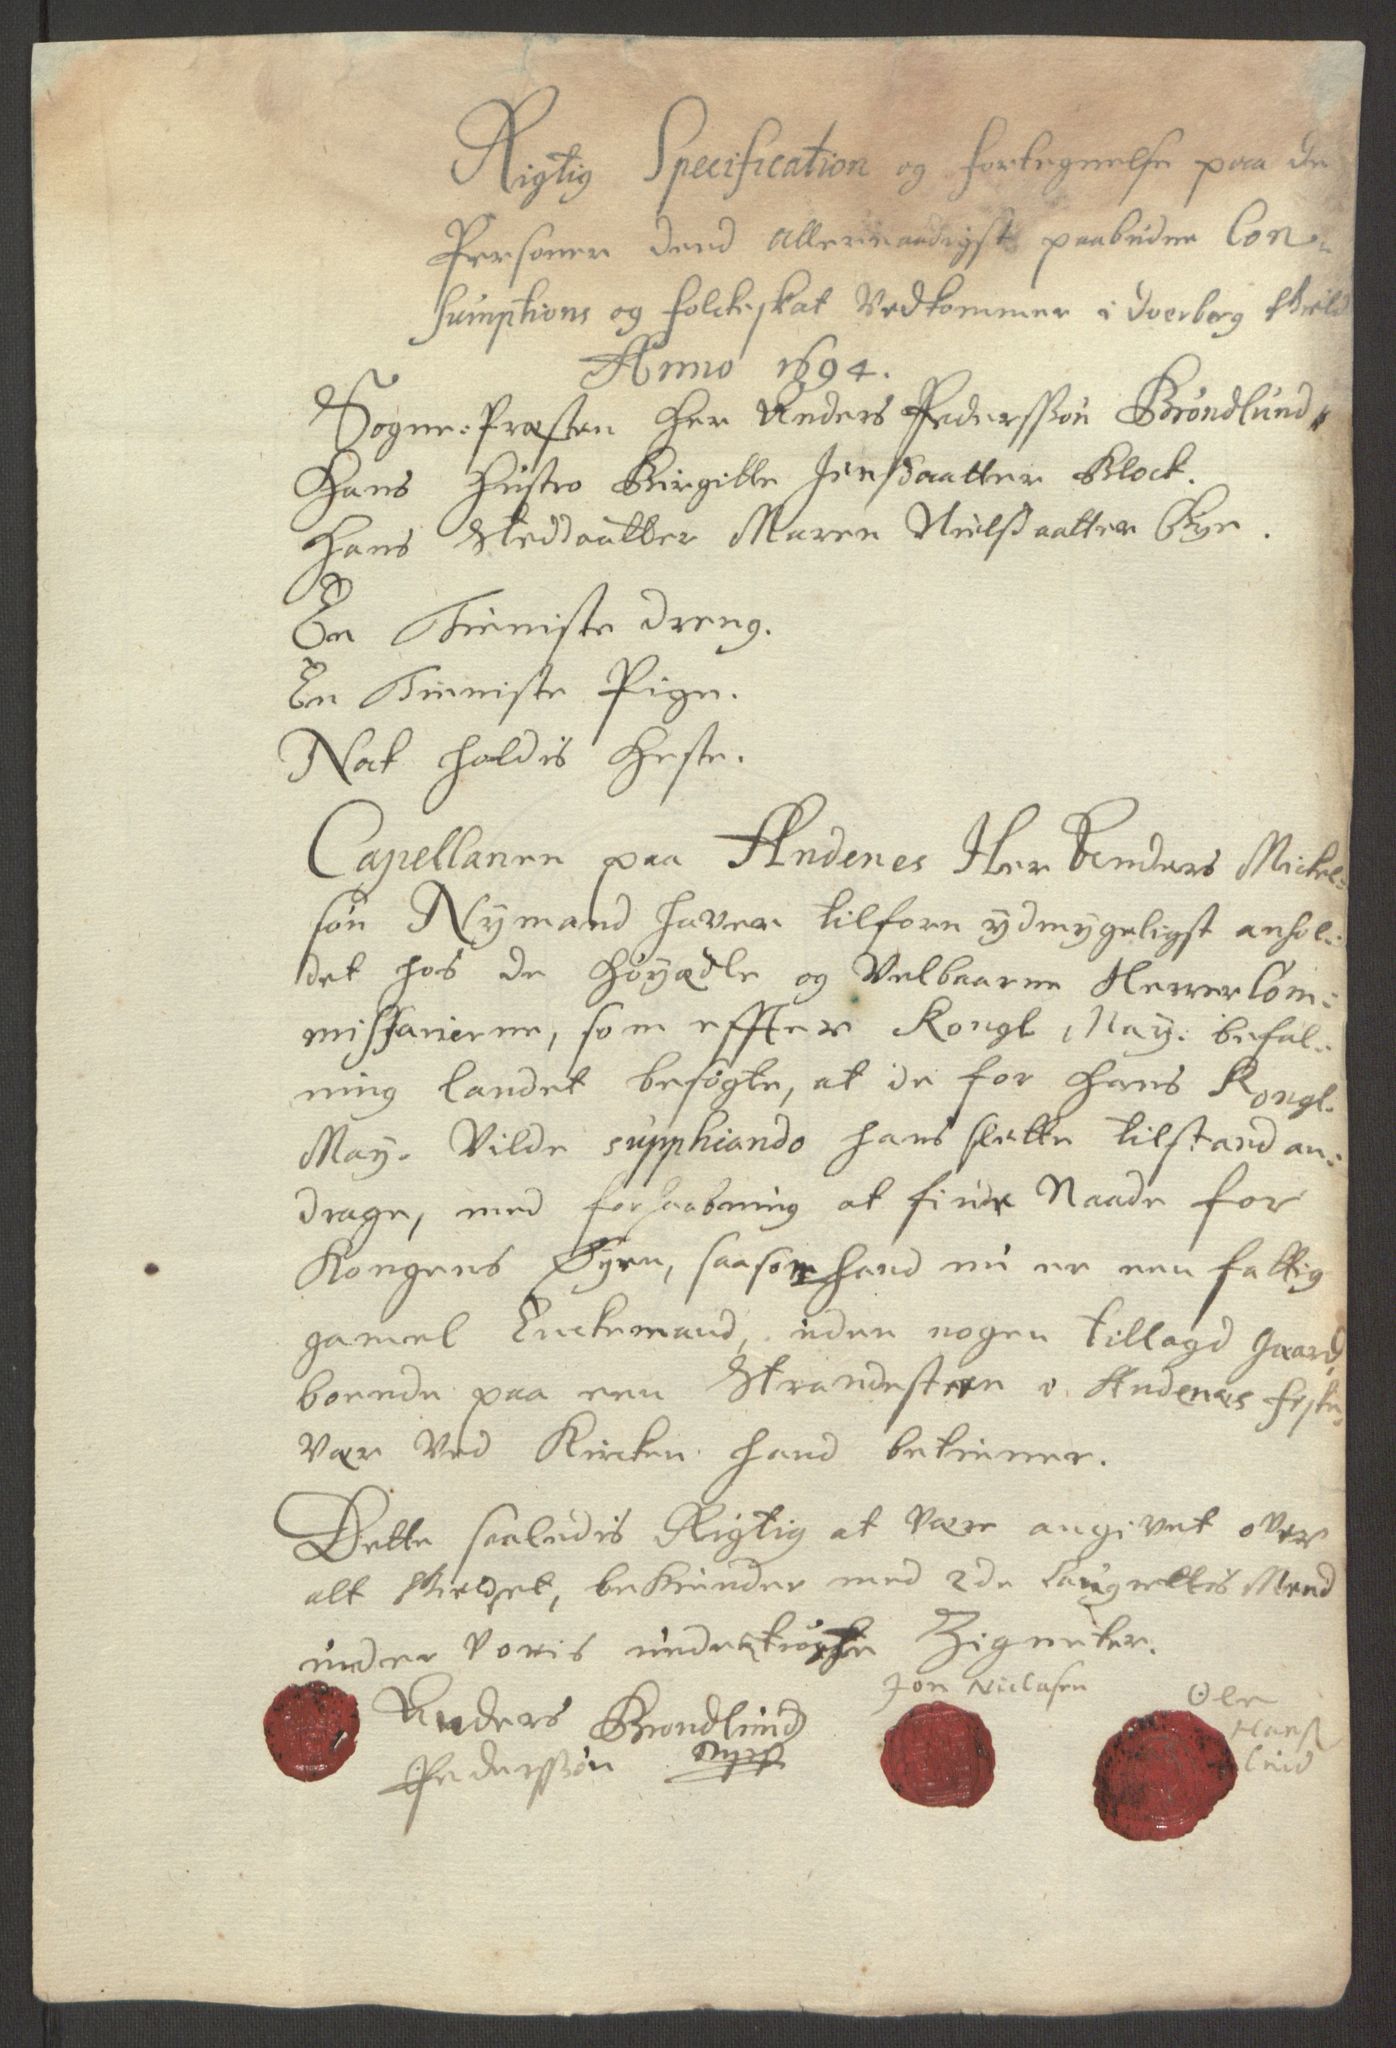 Rigtig Specification og fortegnelse paa de
Personer dend allernaadigst paabudne Con-
sumptions og folckeskat Vedkommer i Dverberg Gield
Anno 1694.
Sogne-Præsten Her Anders Pederssøn Brøndlund
Hans Hustro Birgitte Jensdaatter Block.
Hans Steddaatter Maren Nielsdaatter Gye.
En Tieniste dreng.
En Tieniste Pige.
Nat holdis Heste.
Capellanen paa Andenes Her Anders Mickel-
søn Nymand haver tilforn ydmygeligst anhol-
det hos de Høyædle og Velbaarne Herrer Com-
missarierne, som effter Kongl. May: befal-
ning landet besøgte, at de for Hans Kongl.
May. Vilde suppliando hans slette tilstand an-
drage, med forhaabning at finde Naade for
Kongens Øyen, saasom hand nu er en fattig
gamel Enckemand, uden nogen tillagd gaard,
boende paa een Strandesteen i Andenæs fiske
Vær Ved Kircken hand betiener.
Dette saaledis Rigtig at Være angivet over
alt Gieldet, bekiender med 2de Laugrettis Mænd
under Voris undertrögte Zigneter.
Jon Nielsen
Ole
Hanß
lund
Anders Brøndlund
Pederssøn